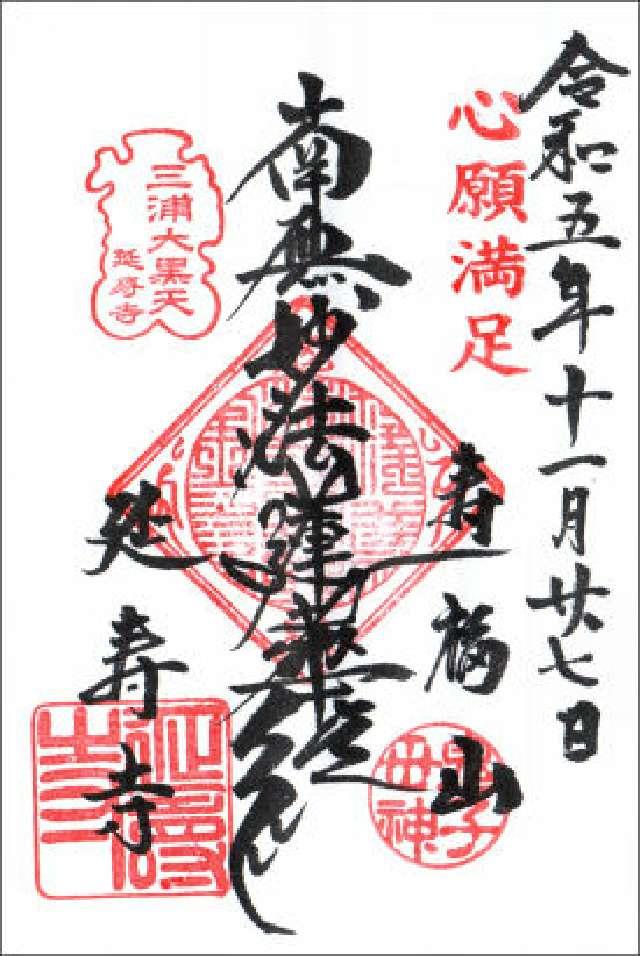 令和五年十一月廿七日
心願満足
寿福山
南無妙法蓮華経
三浦大黒天
延寿寺
延寿寺